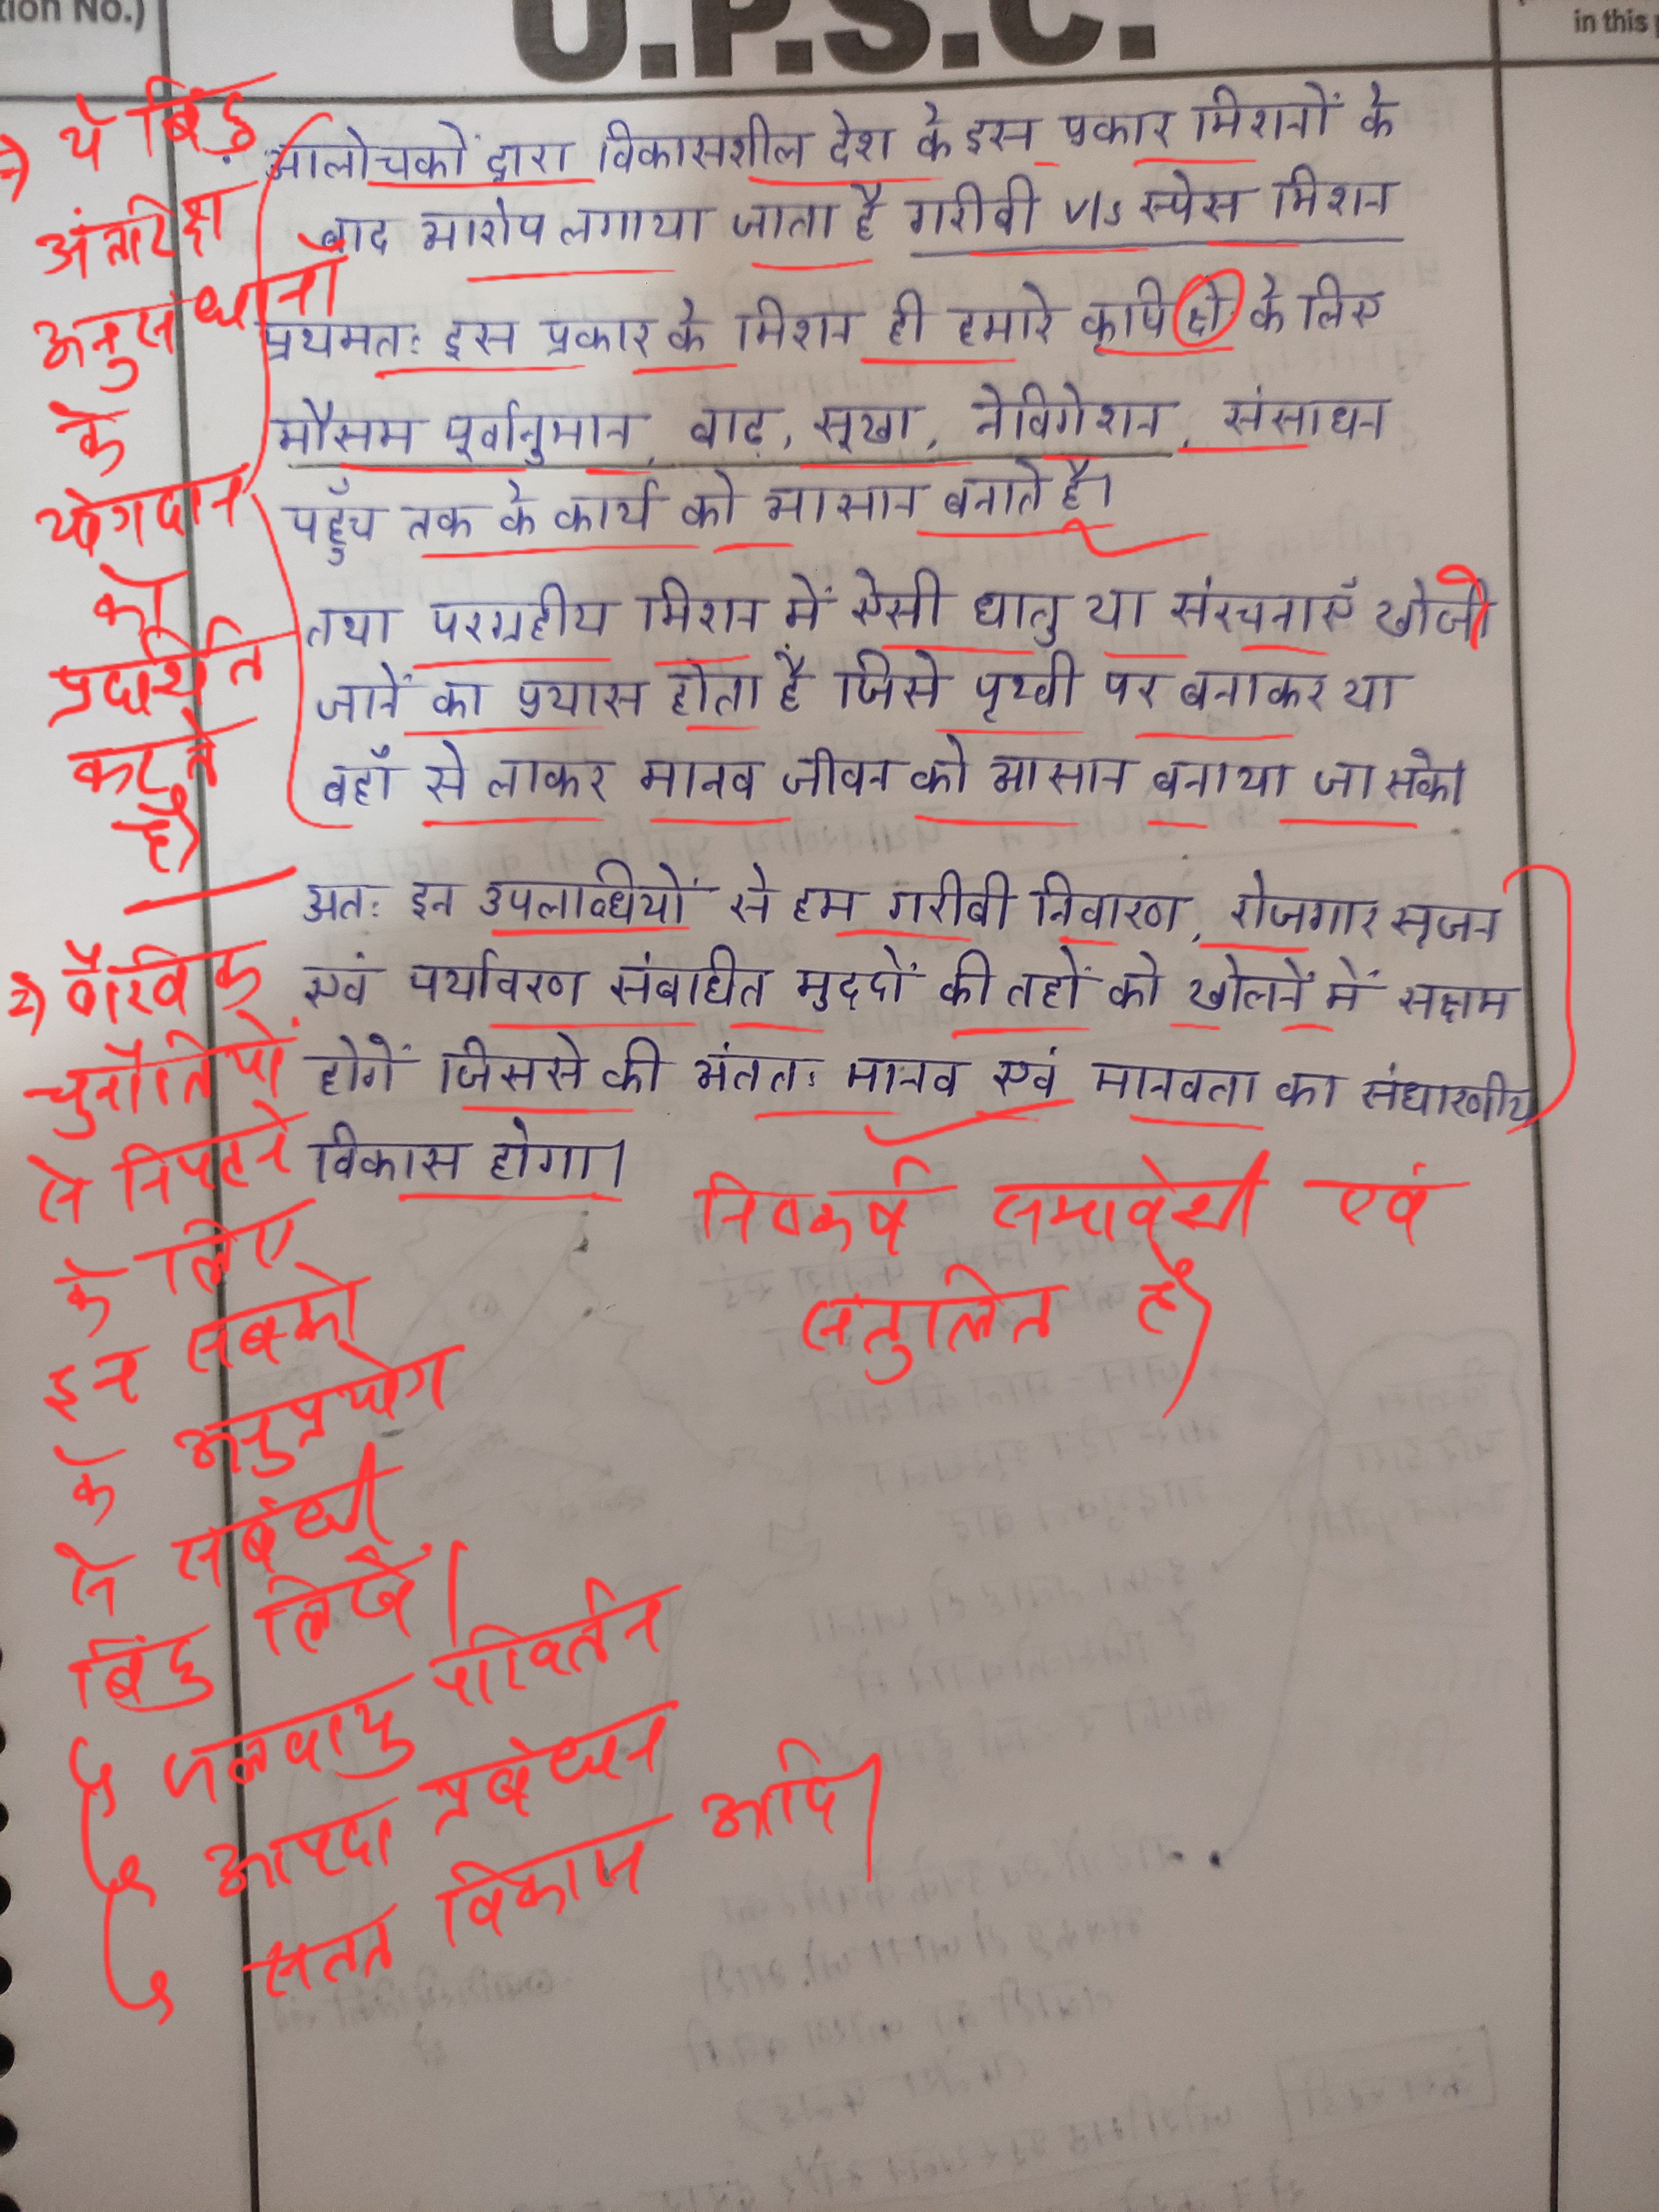 tion No.)
U.P.S.C.
in this
आलोचकों द्वारा विकासशील देश के इस प्रकार मिशनों के
बाद आरोप लगाया जाता है गरीबी v/s स्पेस मिशन
प्रथमतः इस प्रकार के मिशन ही हमारे कृषि क्षे. के लिए
मौसम पूर्वानुमान, बाढ़, सूखा, नेविगेशन, संसाधन
पहुँच तक के कार्य को आसान बनाते है।
तथा परग्रहीय मिशन में ऐसी धातु या संरचनाएँ खोजी
जानें का प्रयास होता है जिसे पृथ्वी पर बनाकर या
वहाँ से लाकर मानव जीवन को आसान बनाया जा सके।
अतः इन उपलब्धियों से हम गरीबी निवारण, रोजगार सृजन
एवं पर्यावरण संबंधित मुद्दों की तहों को खोलनें में सक्षम
होगें जिससे की अंततः मानव एवं मानवता का संधारणीय
विकास होगा।
1) ये बिंदु
अंतरिक्ष
अनुसंधानों
के
योगदान
को
प्रदर्शित
करते
है।
2) वैश्विक
चुनौतियों
से निपटने
के लिए
इन सबको
के अनुप्रयोग
से संबंधी
बिंदु लिखें।
जलवायु परिवर्तन
आपदा प्रबंधन
सतत विकास आदि।
निष्कर्ष समावेशी एवं
संतुलित है।